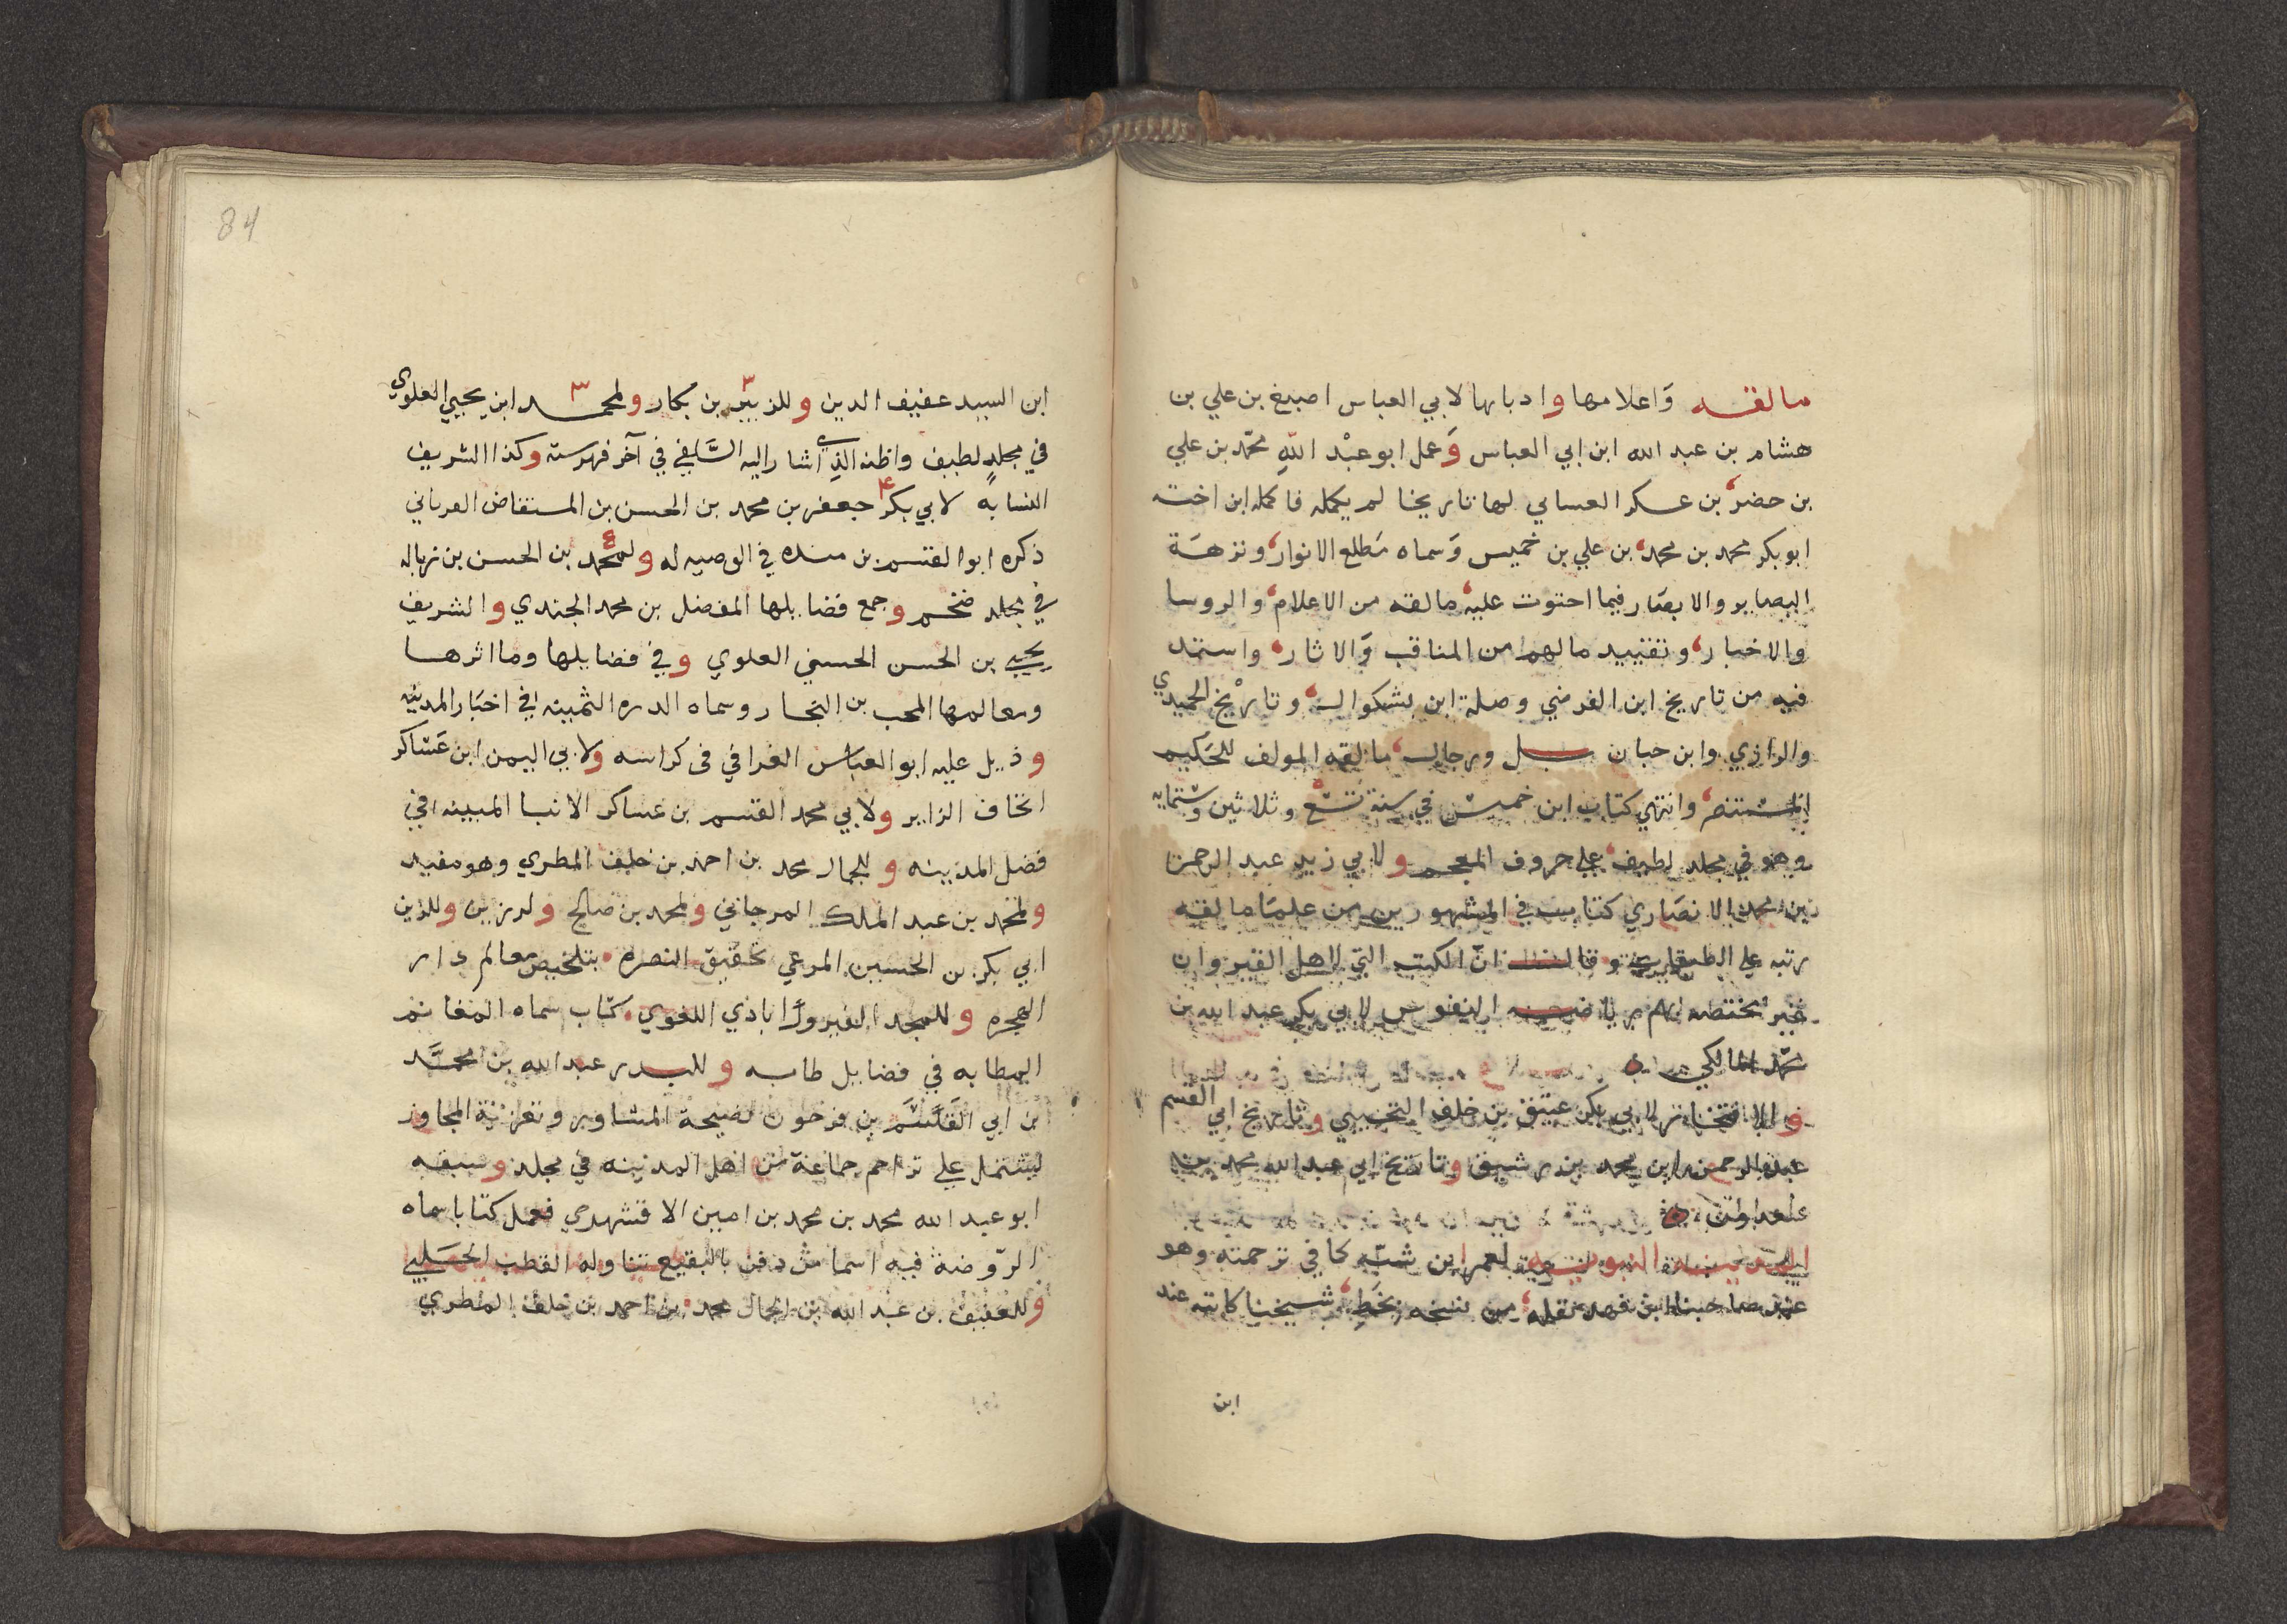 مالقه وَاعلامها وادبايها لابي العباس اصبغ بن علي بن
هشام بن عبد الله ابن ابي العباس وَعمل ابو عبْد اللّهِ محمّد بن علي
بن حضر بن عسكر العساني لها تاريخا لم يكمله فاكمله ابن اخته
ابو بكر محمد بن محمد بن علي بن خميس وَسماه مَطلع الانوار ونزهَة
البصاير والابصَار فيما احتوت عليه مالقه من الاعلام والروسا
والاخبار وتقييد مالهم من المناقب وَالاثار واستمد
فيه من تاريخ ابن الفرضي وصلة ابن بشكوال وتاريْخ الحميدي
والرازي وابن حبان بل ورجال مالقه المولف للحَكيم
المستنصر وانتهي كتاب ابن خميس في سنة تسْع وثلاثين وستمايه
وهو في مجلد لطيف علي حروف المعجم ولابي زيد عبد الرحمن
بن محمد الانصَاري كتاب في المشهورين من علمَا مالقه
رتبه علي الطبقات وقال انّ الكتب التي لاهل القيروان
غير مختصه بهم رياض النفوس لابي بكر عبد الله بن
محمّد المالكي
والافتخار لابي بكر عتيق بن خلف التجيبي وتاريخ ابي القسم
عبد الرحمن ابن محمد بن رشيق وتاريخ ابي عبد الله محمد بن
المدينه النبويه لعمر ابن شبّه كما في ترجمته وهو
عند صاحبنا ابن فهد نقله من نسخه بخَطِ شيخنا كانته عند
ابن
84
ابن السيد عفيف الدين وللزبير بن بكار ولمحمد ابن يحيي العلوي
في مجلدٍ لطيف واظنه الذي اشار اليه السَّلفي في آخر فهرسته وكذا الشريف
النسابةً لابي بكر جعفر بن محمد بن الحسن بن المستفاض الفرياني
ذكره ابو القسم بن منده في الوصيه له ولمحمد بن الحسن بن زباله
في مجلد ضخم وجمع فضايلها المفضل بن محمد الجندي والشريف
يحيي بن الحسن الحسني العلوي وفي فضايلها وماثرها
ومعالمها المحب بن النجار وسماه الدره الثمينه في اخبَار المدينه
وذيل عليه ابو العباس الغرافي فى كراسه ولابي اليمن ابن عَسَاكر
اتحاف الزاير ولابي محمد القسم بن عساكر الانبا المبينه في
فضل المدينه وللجمال محمد بن احمد بن خلف المطري وهو مفيد
ولمحمد بن عبد الملك المرجاني ولمحمد بن صالح ولرزين وللزين
ابي بكر بن الحسين المراغي تحقيق النصره بتلخيص معالم دار
الهجره وللمجد الفيروز اباذي اللغوي كتاب سماه المغانم
المطابه في فضايل طابه وللبدر عبد الله بن محمَّد
بن ابي القَسَم بن فرحون نصيحة المشاور وتعزية المجاور
يشتمل علي تراجم جماعة من اهل المدينه في مجلد وسبقه
ابو عبد الله محمد بن محمد بن امين الاقشهري فعمل كتابا سماه
الرّوضة فيه اسما من دفن بالبقيع تناوله القطب الحَلبي
وللعفيف بن عبد الله بن الجمال محمد بن احمد بن خلف المطري